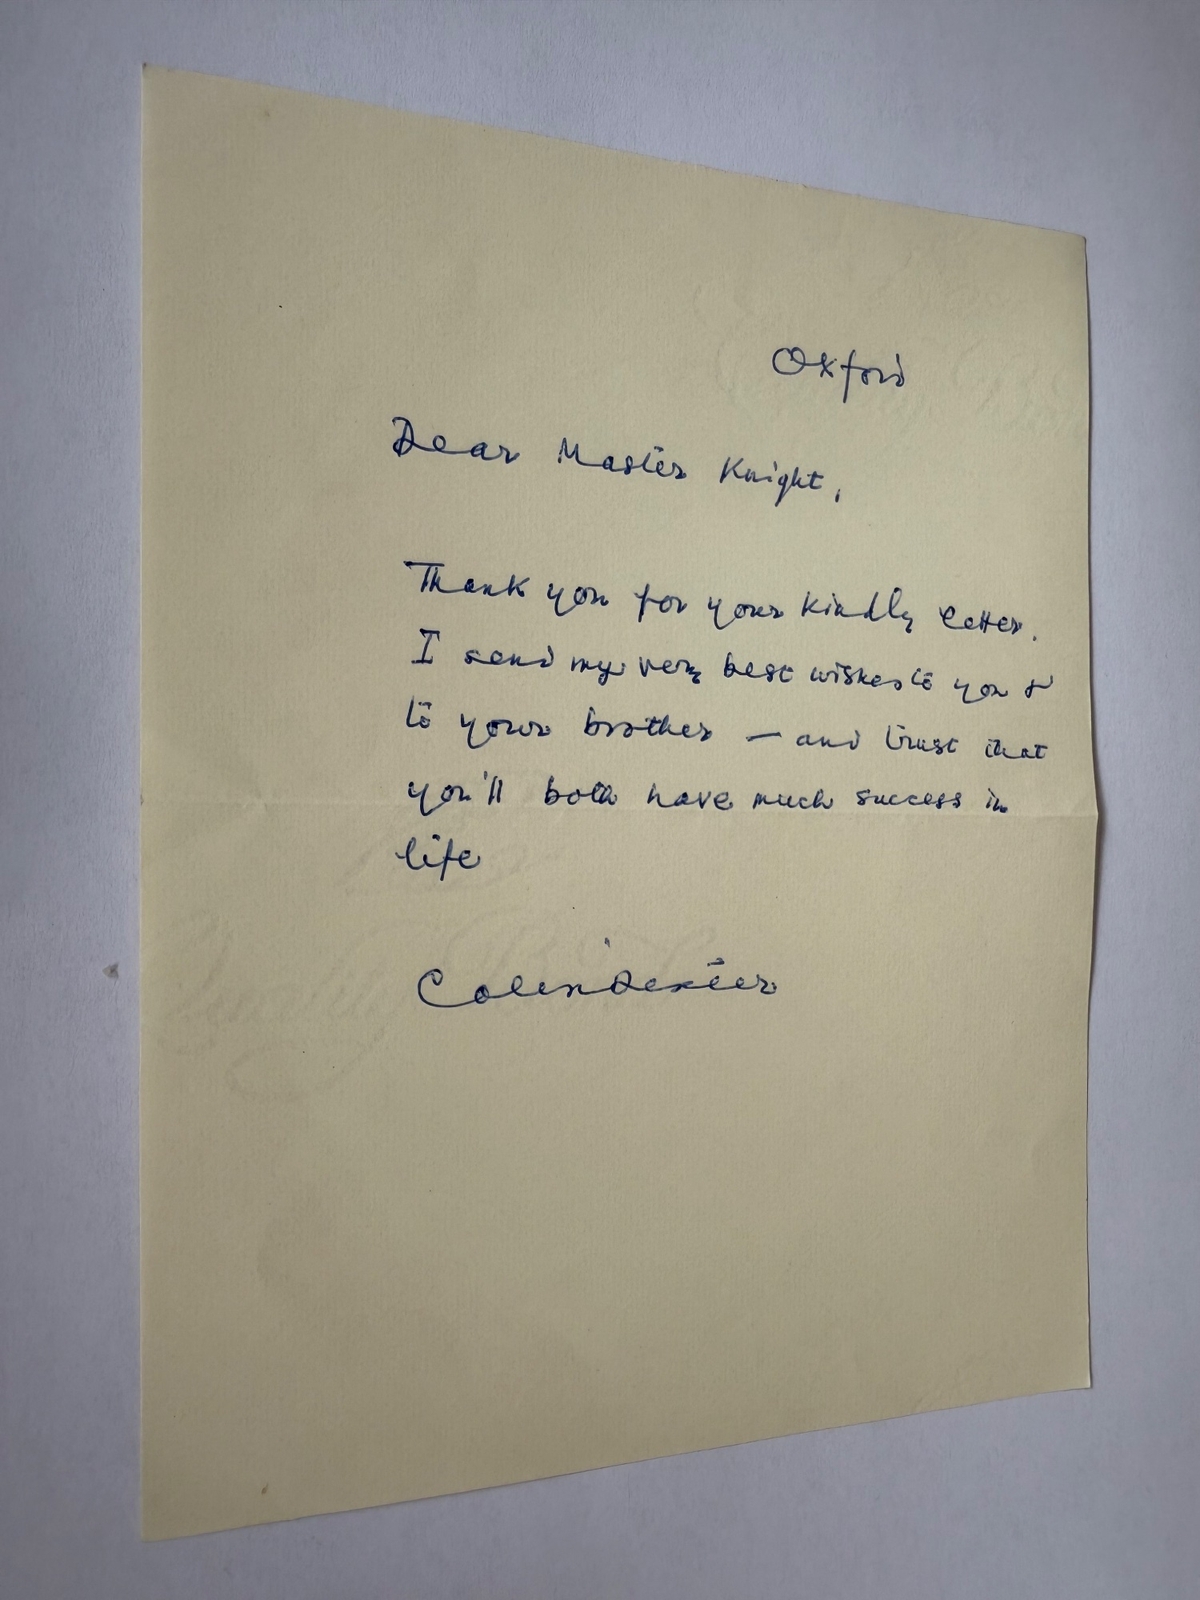 Oxford
Dear Master Knight,
Thank you for your kindly letter.
I send my very best wishes to you &
to your brother — and trust that
you'll both have much success in
life
Colin Dexter